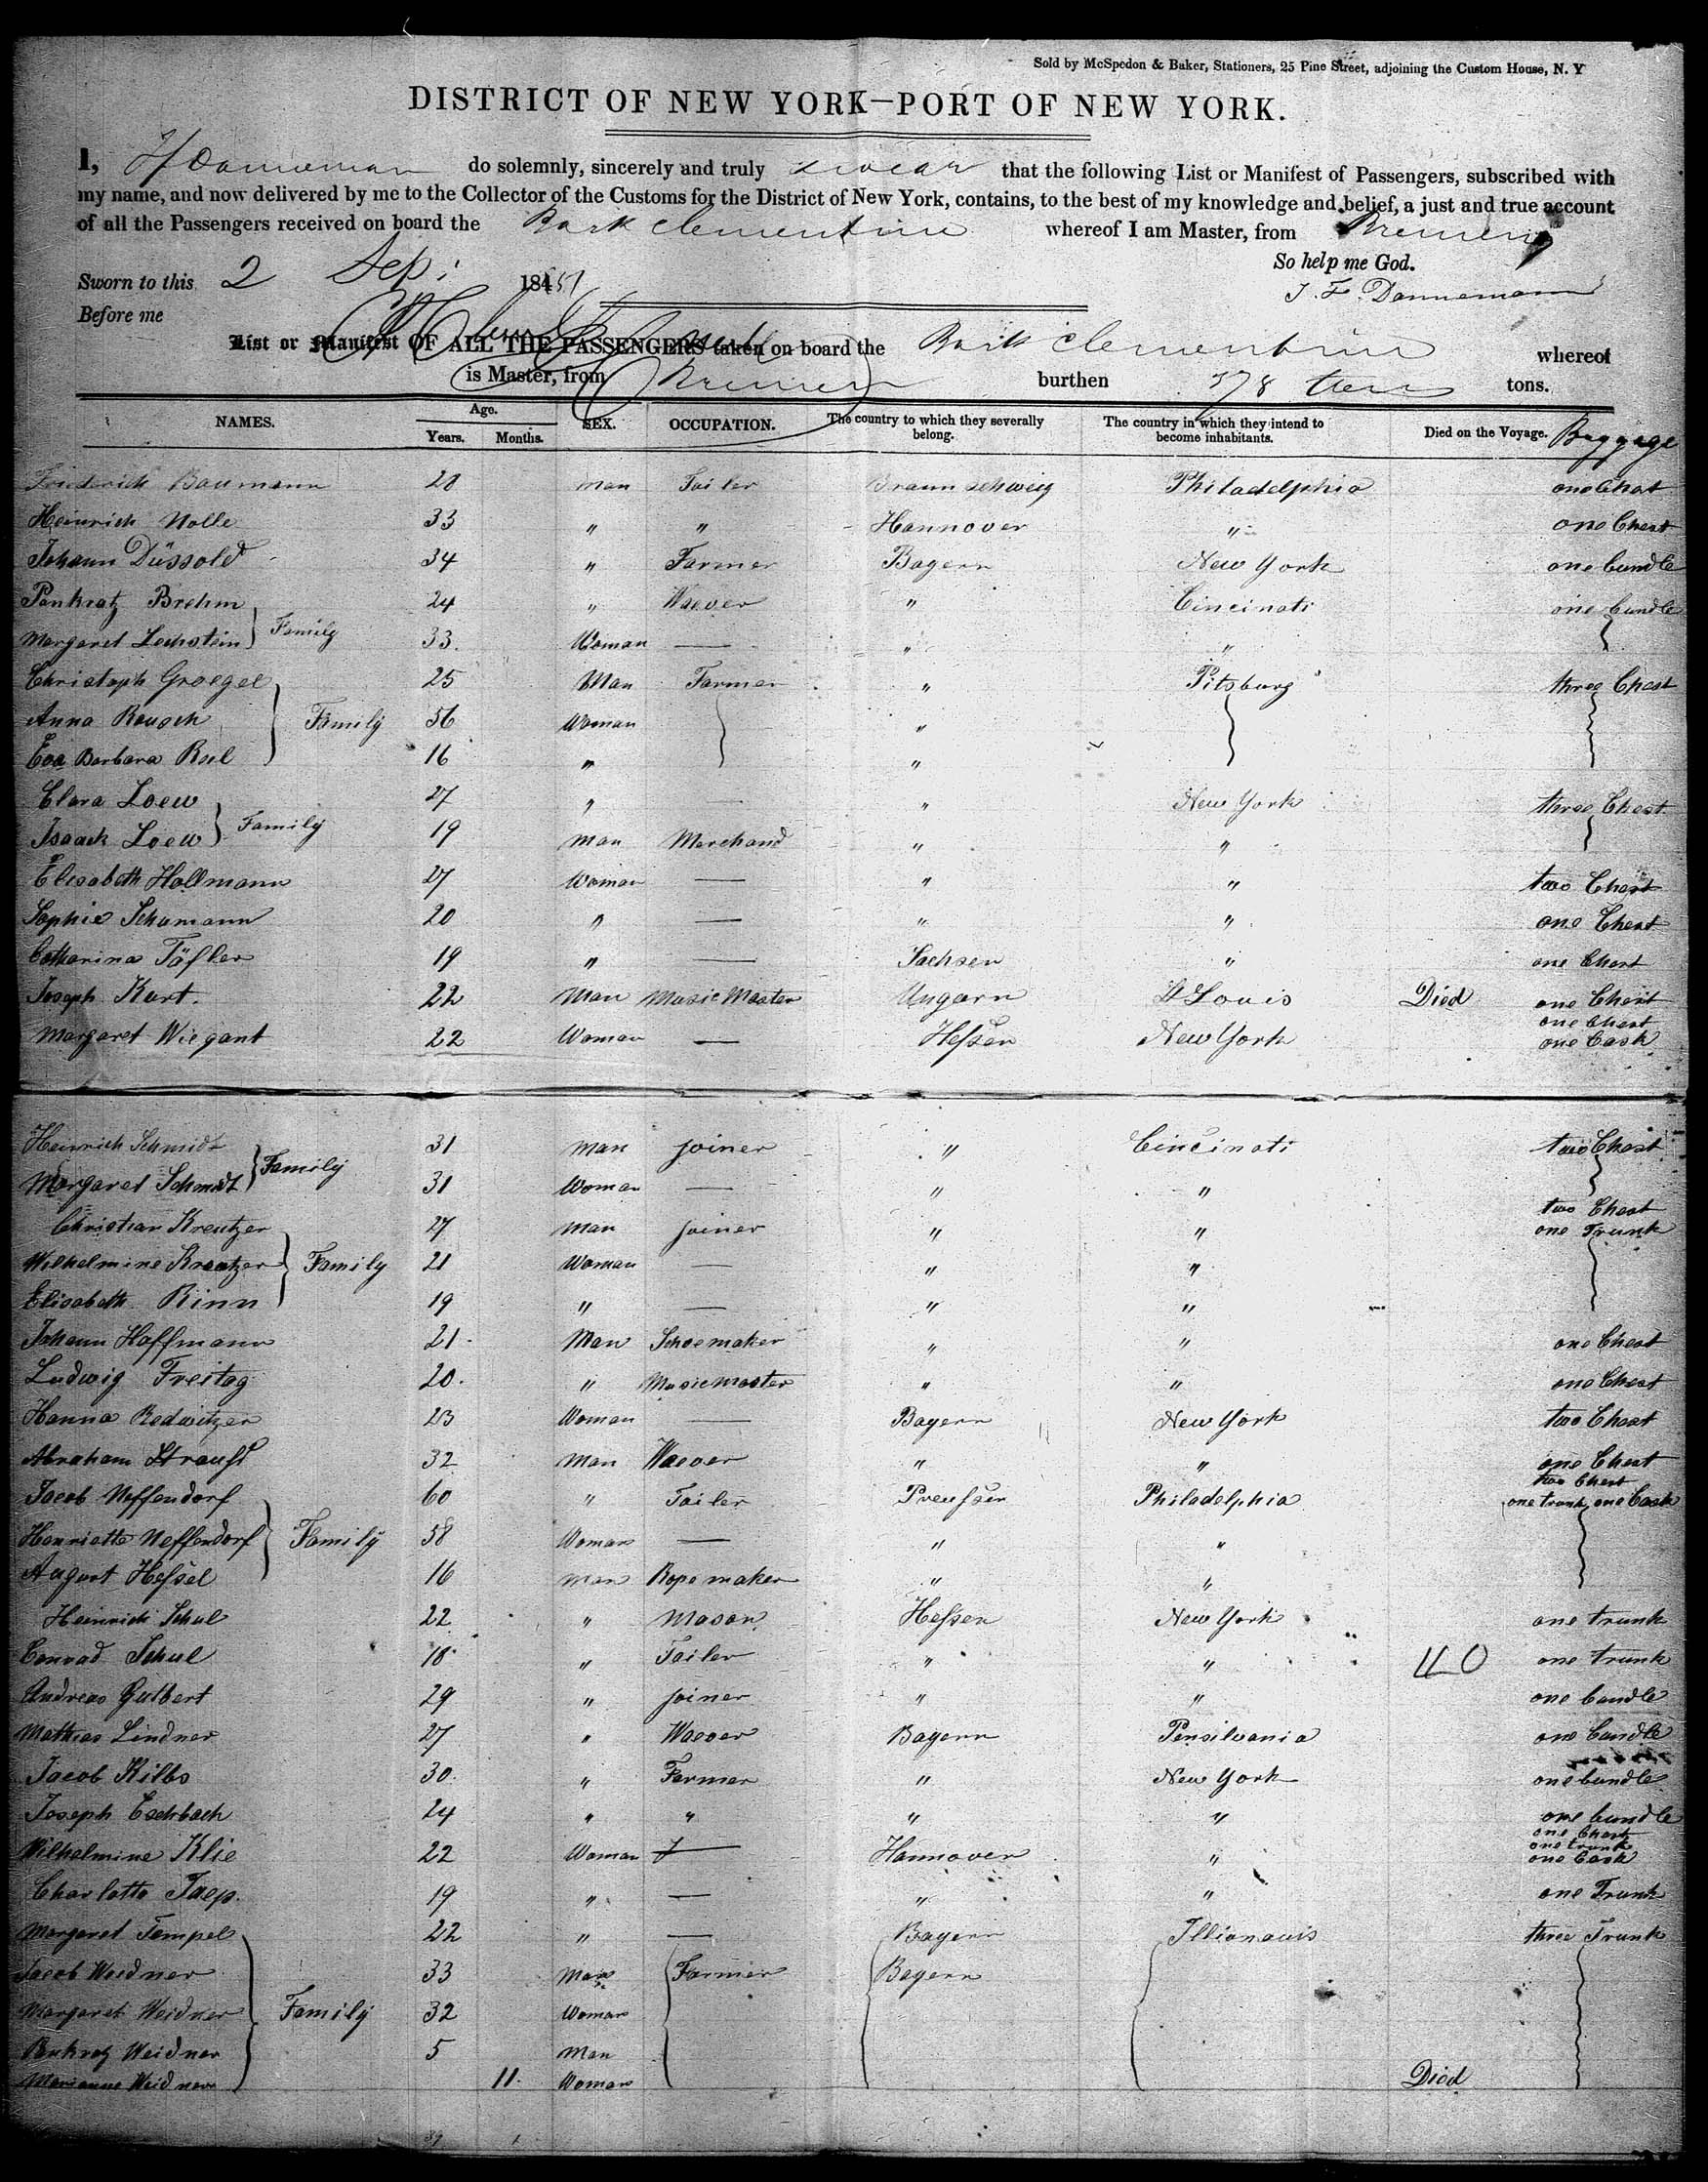 Sold by McSpedon & Baker, Stationers, 25 Pine Street, adjoining the Custom House, N. Y
DISTRICT OF NEW YORK—PORT OF NEW YORK.
I, Danneman do solemnly, sincerely and truly swear that the following List or Manifest of Passengers, subscribed with
my name, and now delivered by me to the Collector of the Customs for the District of New York, contains, to the best of my knowledge and belief, a just and true account
of all the Passengers received on board the Bark Clementine whereof I am Master, from Bremen
So help me God.
Sworn to this 2 Sep. 1851
J. F. Dannemann
Before me
List or Manifest OF ALL THE PASSENGERS taken on board the Bark Clementine whereof
is Master, from Bremen burthen 378 tons.
NAMES. Age. Years. Months. SEX. OCCUPATION. The country to which they severally belong. The country in which they intend to become inhabitants. Died on the Voyage. Baggage
Friederich Baumann 28 man Tailer Braunschweig Philadelphia one Chest
Heinrich Nolle 33 " " Hannover " one Chest
Johann Düssold 34 " Farmer Bayern New York one bundle
Pankratz Brehm 24 " Waever " Cincinati one bundle
Margaret Lechstein Family 33. Woman — " "
Christoph Groegel 25 Man Farmer " Pitsburg three Chest
Anna Rausch Family 56 Woman "
Eva Barbara Rul 16 " "
Clara Loew 27 " — " New York three Chest
Isaack Loew Family 19 man Marchand " "
Elisabeth Hollmann 27 Woman — " " two Chest
Sophie Schumann 20 " — " " one Chest
Catharina Töfler 19 " — Sachsen " one Chest
Joseph Kart. 22 Man Music Master Ungarn St Louis Died one Chest
one Chest
Margaret Wiegant 22 Woman — Hessen New York one Cask
Heinrich Schmidt 31 man joiner " Cincinati two Chest
Margaret Schmidt Family 31 Woman — " "
two Chest
Christian Kreutzer 27 man joiner " " one Trunk
Wilhelmine Kreutzer Family 21 Woman — " "
Elisabeth Rinn 19 " — " "
Johann Hoffmann 21. Man Schoemaker " " one Chest
Ludwig Freitag 20. " Musicmaster " " one Chest
Hanna Redwitzer 23 Woman — Bayern New York two Chest
Abraham Strauss 32 Man Waever " " one Chest
two Chest
Jacob Neffendorf 60 " Tailer Preussen Philadelphia one trunk, one Cask
Henriette Neffendorf Family 58 Woman — " "
August Hessel 16 man Rope maker " "
Heinrich Schul 22 " Mason Hessen New York one trunk
Conrad Schul 18 " Tailer " " 40 one trunk
Andreas Gulbert 29 " joiner " " one bundle
Mathias Lindner 27 " Waever Bayern Pensilvania one bundle
Jacob Kilbs 30. " Farmer " New York one bundle
Joseph Eschbach 24 " " " " one bundle
one Chest
one trunk
Wilhelmine Klie 22 Woman — Hannover " one Cask
Charlotte Jaep. 19 " — " " one Trunk
Margaret Tempel 22 " — Bayern Illionouis three Trunk
Jacob Weidner 33 Man Farmer Bayern
Margaret Weidner Family 32 Woman
Pankratz Weidner 5 Man
Marianne Weidner 11. Woman Died
39 1